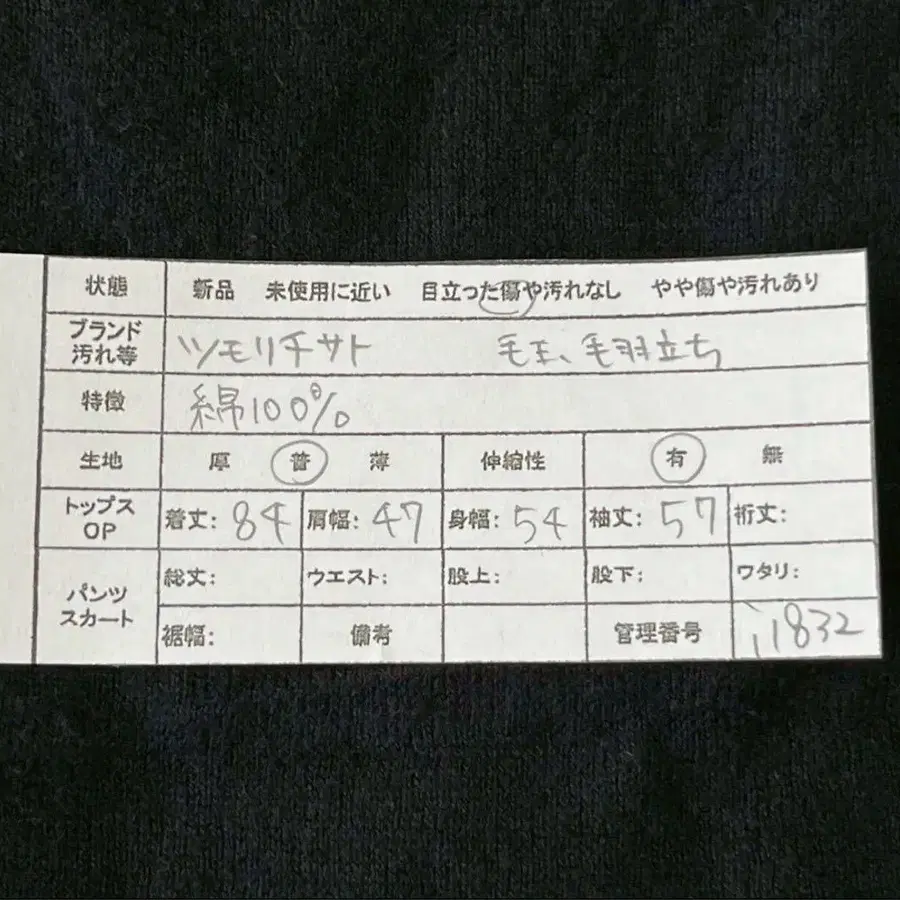 状態 新品 未使用に近い 目立った傷や汚れなし やや傷や汚れあり
ブランド
汚れ等 ツモリチサト 毛玉、毛羽立ち
特徴 綿100%
生地 厚 普 薄 伸縮性 有 無
トップス
OP 着丈: 84 肩幅: 47 身幅: 54 袖丈: 57 裄丈:
パンツ
スカート 総丈: ウエスト: 股上: 股下: ワタリ:
裾幅: 備考 管理番号 い1832